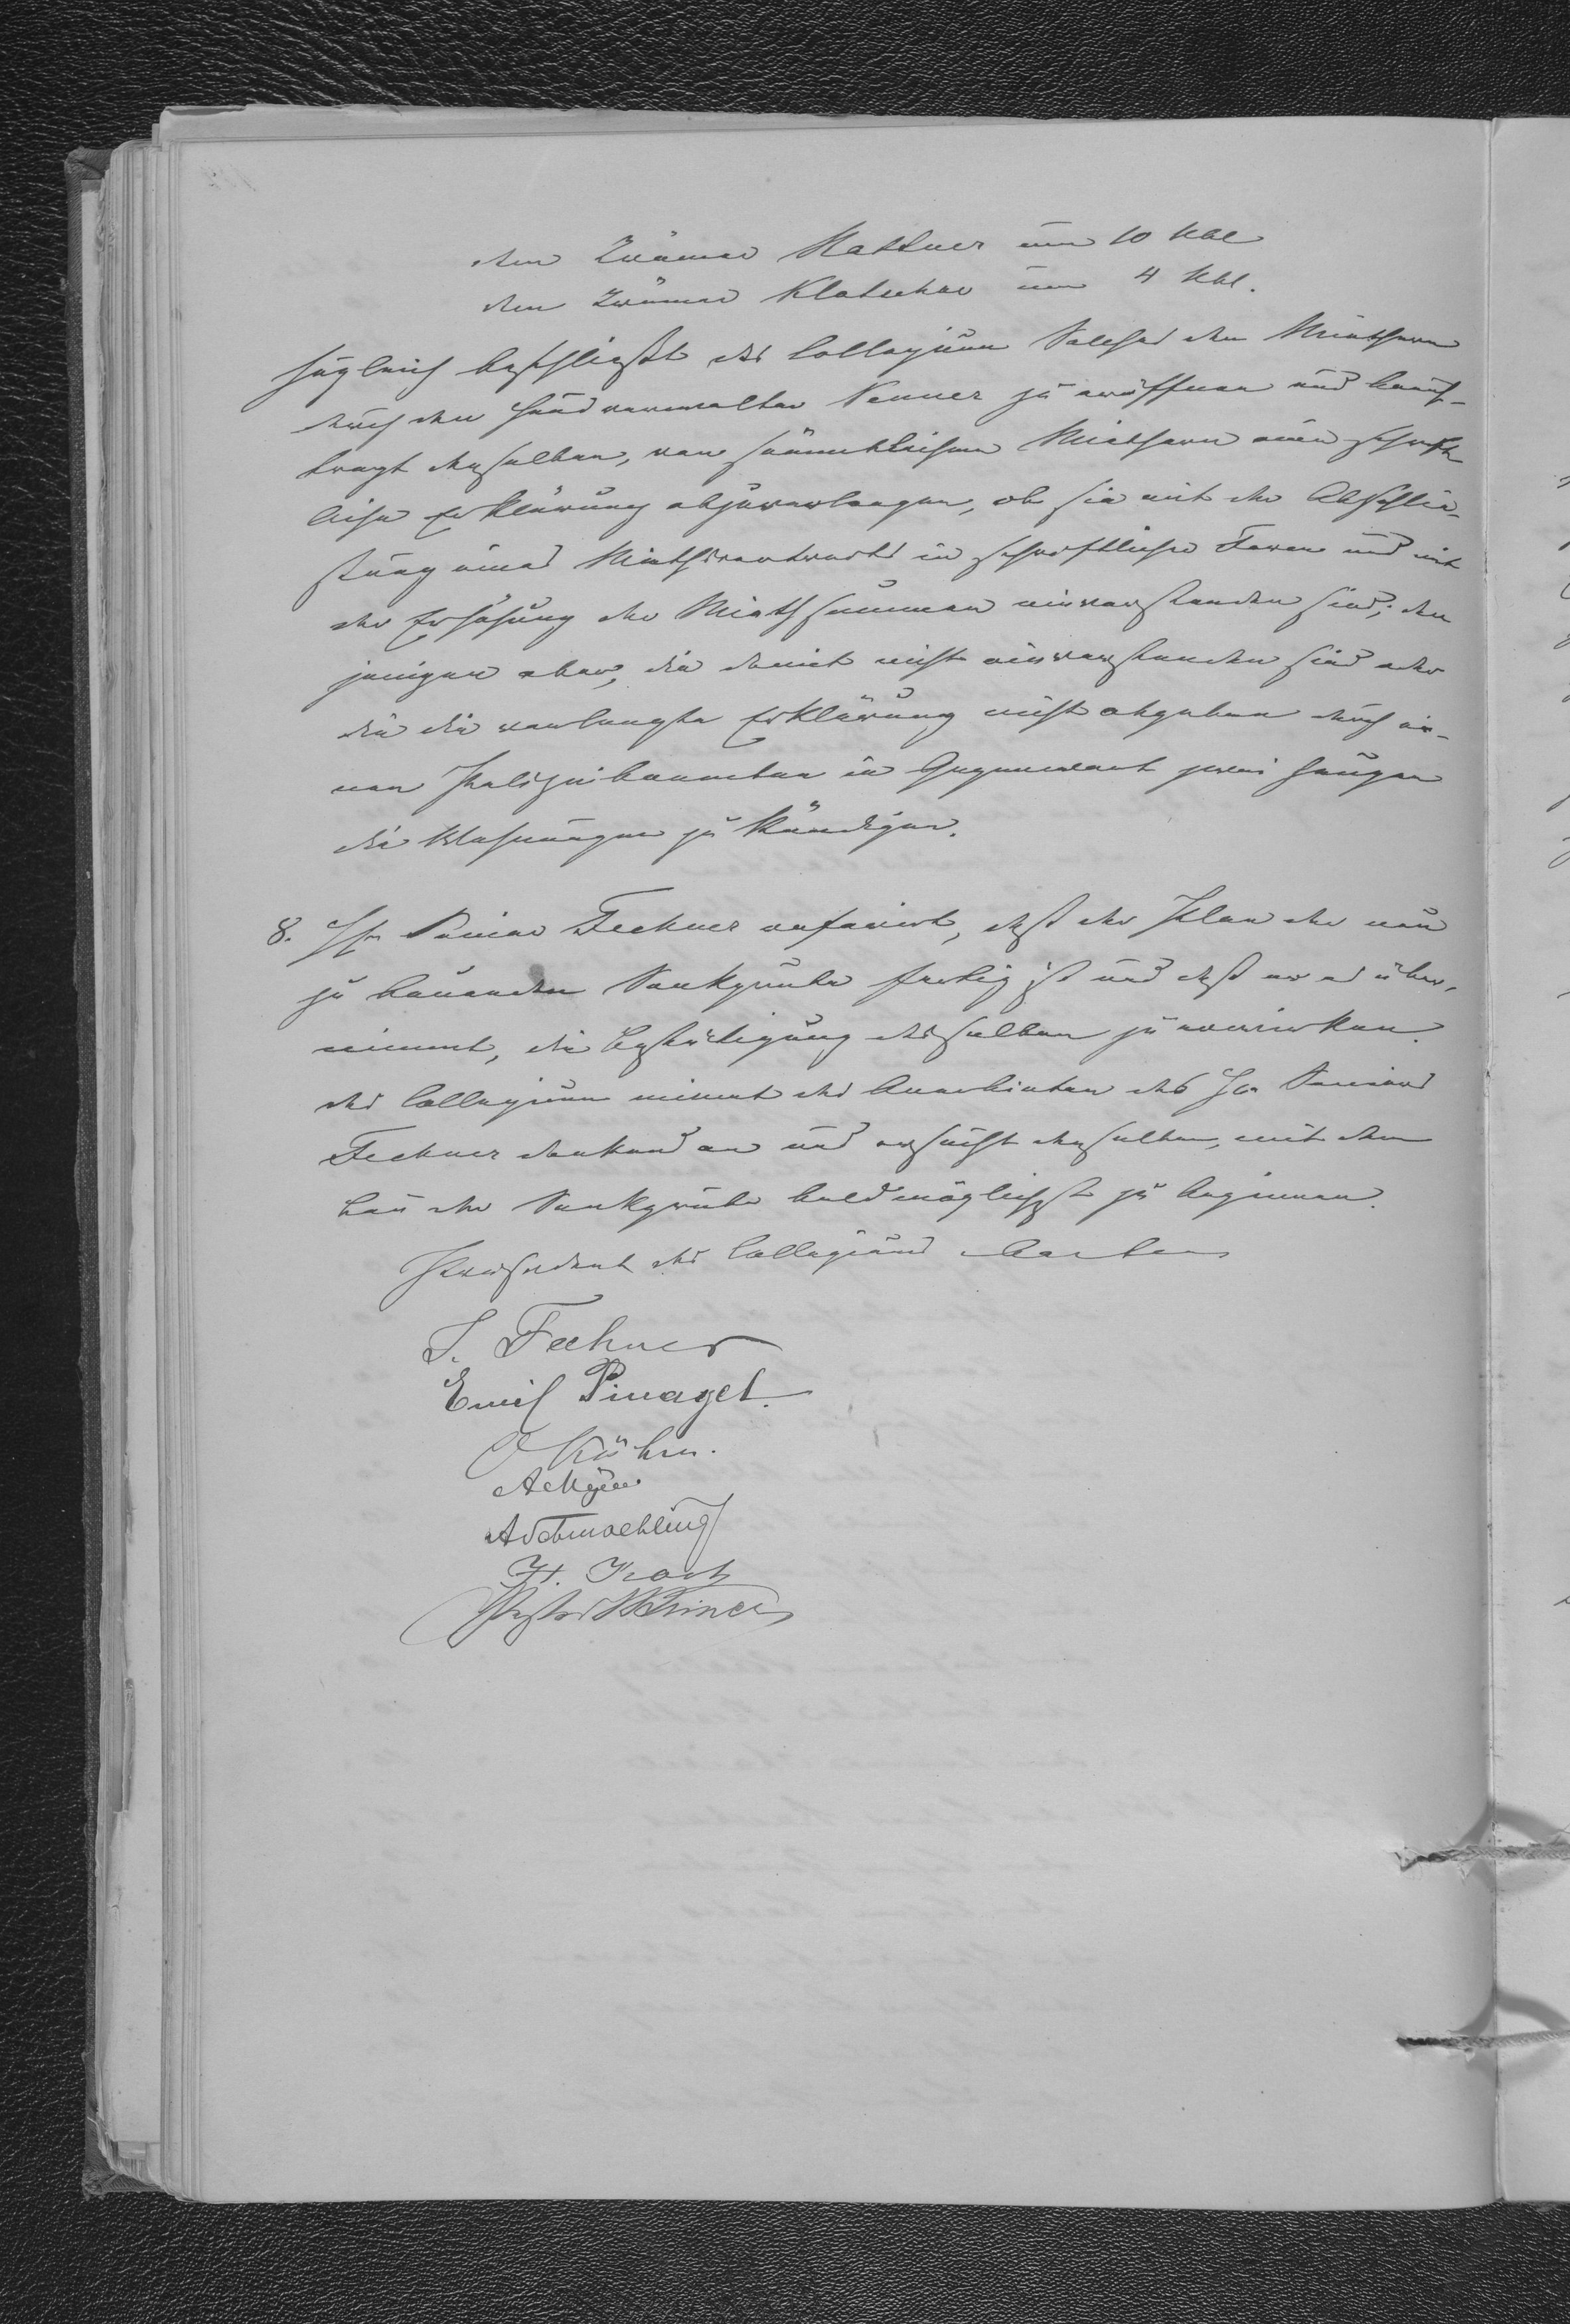 dem Krämer Kattner um 10 Rbl
dem Krämer Klatschko um 4 Rbl.
Zugleich beschließt das Collegium solches den Miethern
durch den Hausverwalter Renner zu eröffnen und beauf-
tragt denselben, von sämmtlichen Miethern eine schrift
liche Erklärung abzuverlangen, ob sie mit der Abschlie-
ßung eines Miethcontracts in schriftlicher Form und mit
der Erhöhung der Miethsummen einverstanden sind; den
jenigen aber, die damit nicht einverstanden sind oder
die die verlangte Erklärung nicht abgeben durch ei-
nen Polizeibeamten in Gegenwart zwei Zeugen
die Wohnungen zu kündigen.
8. Hr Senior Fechner referirt, daß der Plan der neu
zu bauenden Senkgrube fertig ist und daß er es über-
nimmt, die Bestätigung desselben zu erwirken.
Das Collegium nimmt das Anerbieten des Hr Seniors
Fechner dankend an und ersucht denselben, mit dem
Bau der Senkgrube baldmöglichst zu beginnen.
Praesident des Collegiums
J. Fechner
Emil Pinagel.
O Kühn.
A Schmaehling
Pastor